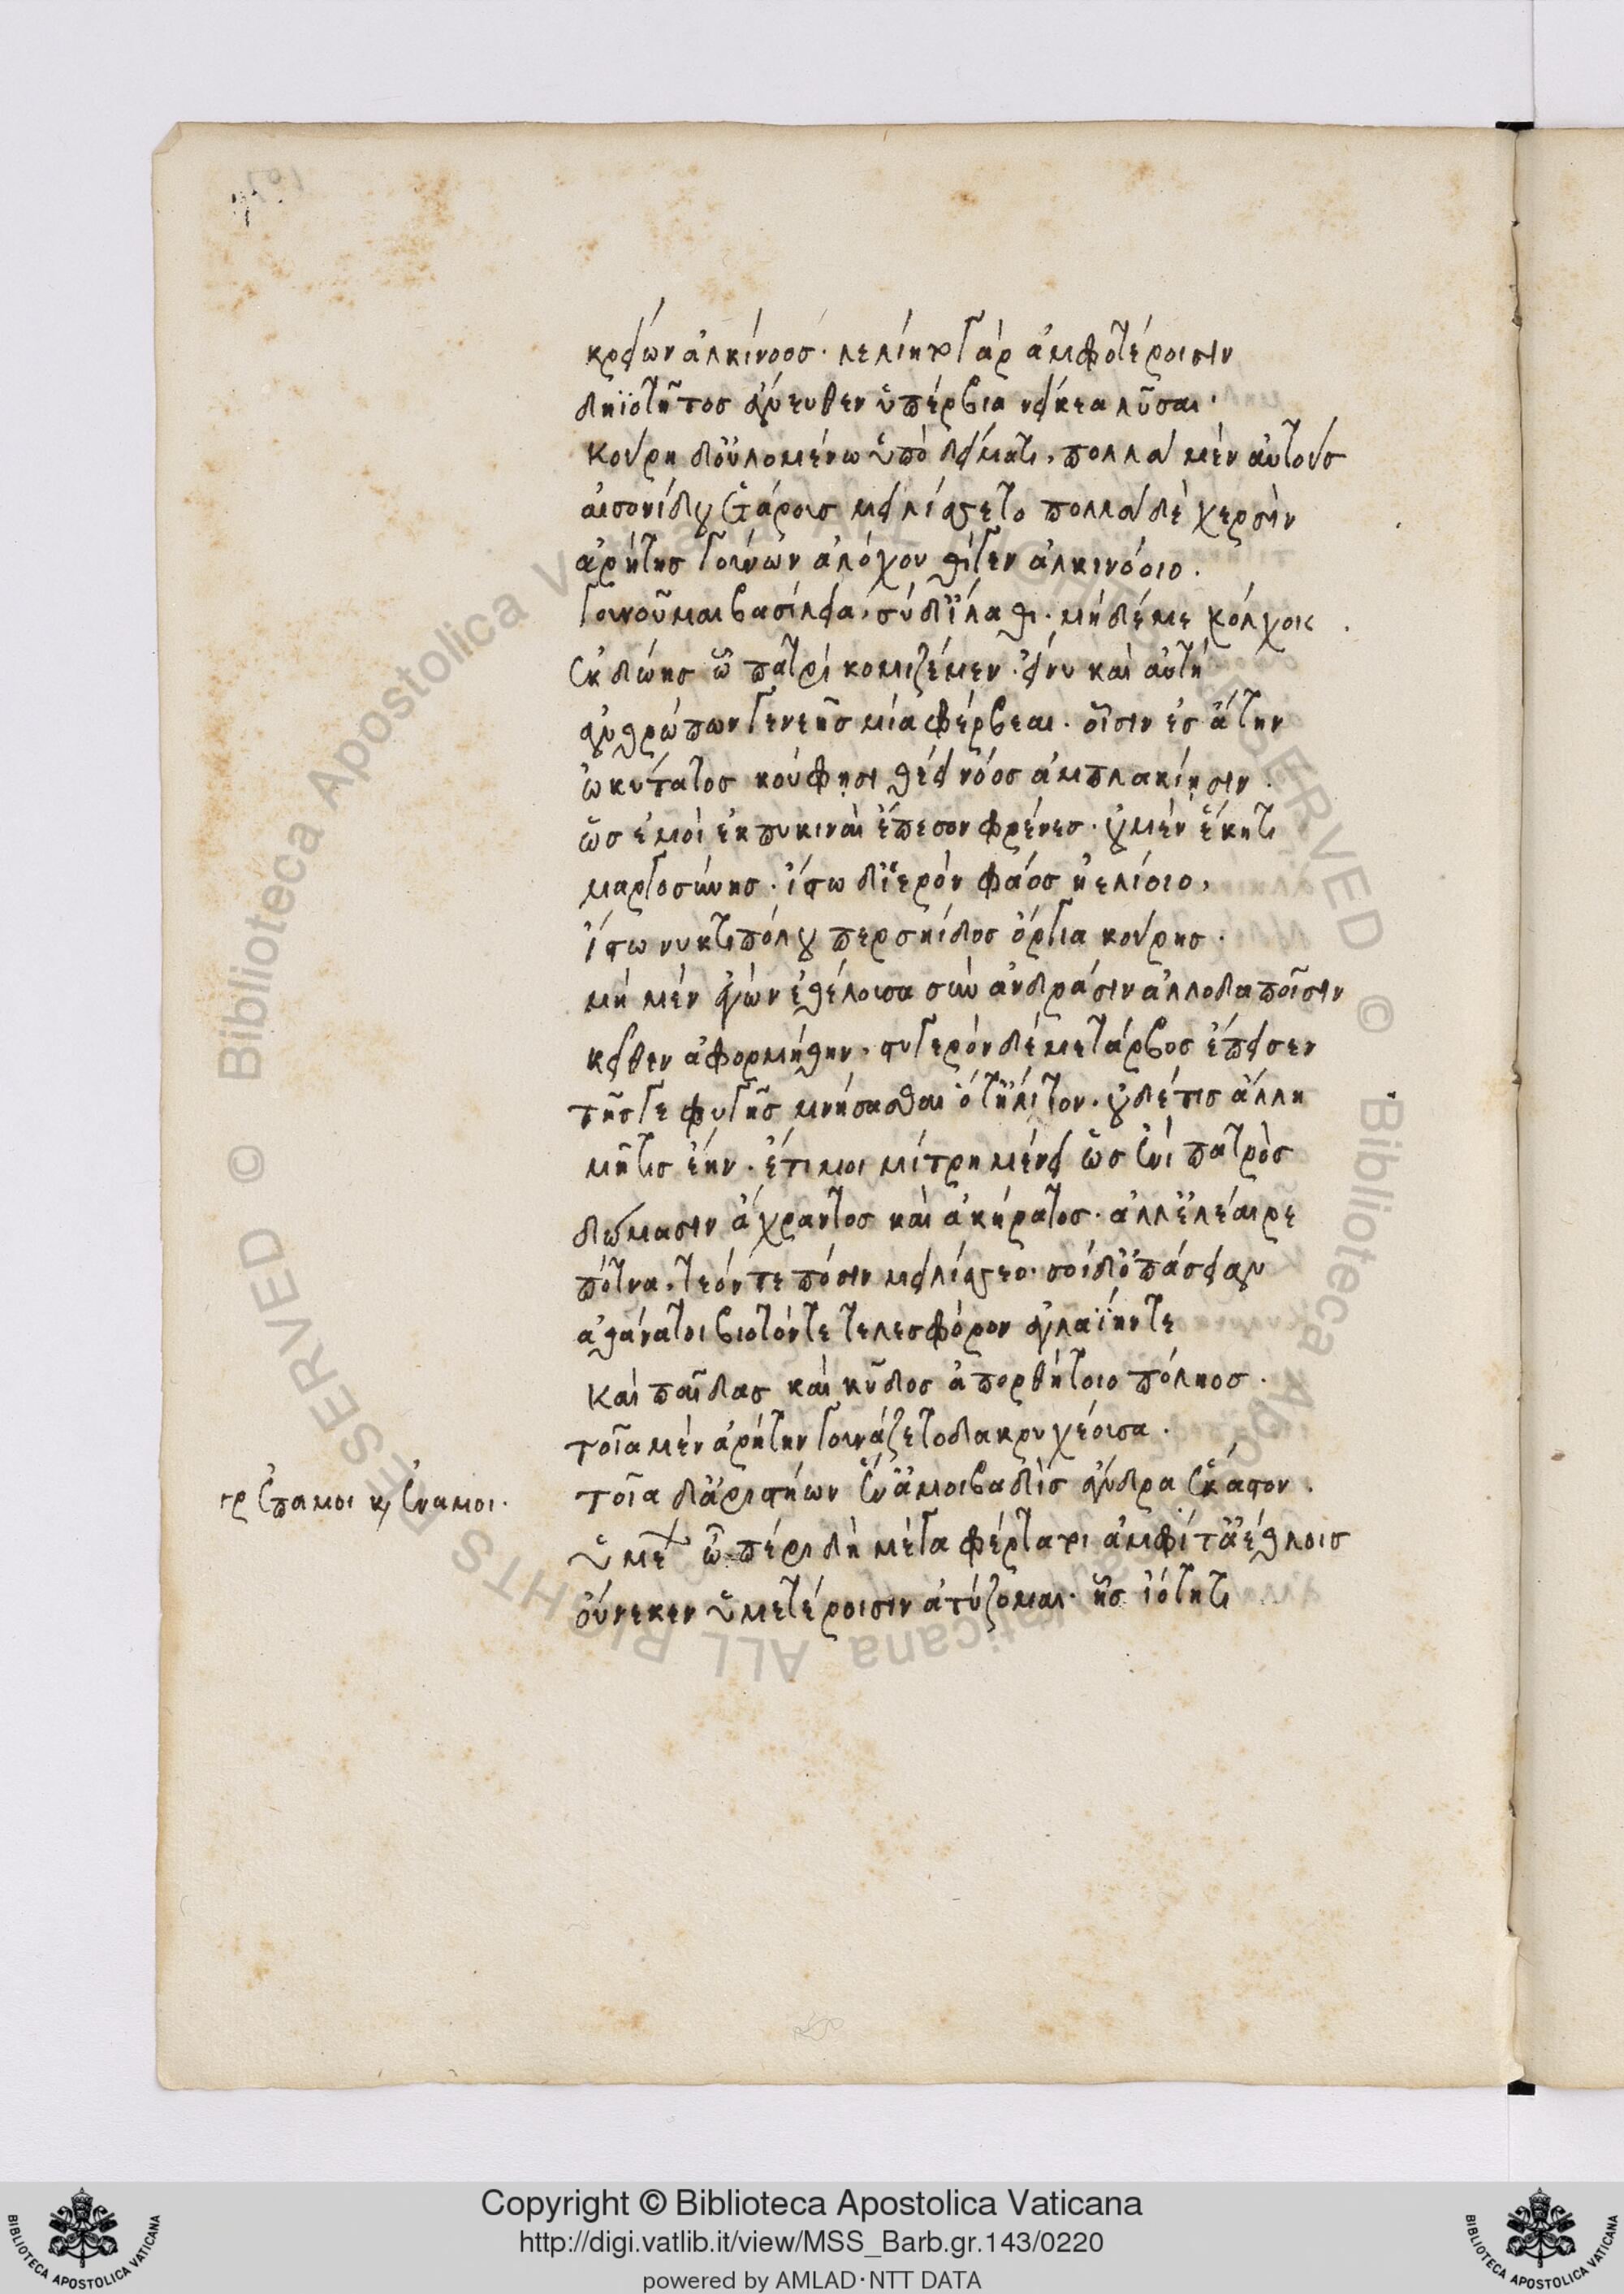 κρείων ἀλκίνοος· λελίητο γὰρ ἀμφοτέροισιν
δηϊοτῆτος ἄνευθεν ὑπέρβια νείκεα λῦσαι·
κούρη δ' οὐλομένω ὑπὸ δείματι, πολλὰ μὲν αὐτοὺς
αἰσονίδου ἑτάρους μειλίσσετο πολλὰ δὲ χερσὶν
ἀρήτης γούνων ἀλόχου θίγεν ἀλκινόοιο.
γουνοῦμαι βασίλεια, σὺ δ' ἵλαθι· μὴ δέ με κόλχοις
ἐκδώης ᾧ πατρὶ κομιζέμεν· εἴ νυ καὶ αὐτὴ
ἀνθρώπων γενεῆς μία φέρβεαι· οἷσιν ἐς ἄτην
ὠκύτατος κούφησι θέει νόος ἀμπλακίησιν.
ὡς ἐμοὶ ἐκ πυκιναὶ ἔπεσον φρένες· οὐ μὲν ἕκητι
μαργοσύνης. ἴστω δ' ἱερὸν φάος ἠελίοιο,
ἴστω νυκτιπόλου περσηίδος ὄργια κούρης.
μὴ μὲν ἐγὼν ἐθέλουσα σὺν ἀνδράσιν ἀλλοδαποῖσιν
κεῖθεν ἀφορμήθην, στυγερὸν δέ με τάρβος ἔπεισεν
τῆς γε φυγῆς μνήσασθαι ὅτ' ἤλιτον· οὐδέ τις ἄλλη
μῆτις ἔην· ἔτι μοι μίτρη μένει ὡς ἐνὶ πατρὸς
δώμασιν ἄχραντος καὶ ἀκήρατος· ἀλλ' ἐλέαιρε
πότνα, τεόν τε πόσιν μειλίσσεο· σοὶ δ' ὀπάσειαν
ἀθάνατοι βίοτόν τε τελεσφόρον ἀγλαΐην τε
καὶ παῖδας καὶ κῦδος ἀπορθήτοιο πόληος.
τοῖα μὲν ἀρήτην γουνάζετο δακρυχέουσα.
τοῖα δ' ἀριστήων ἐναμοιβαδὶς ἄνδρα ἕκαστον.
γρ ἐπαμοι κ, ἐναμοι.
ὑμε ὦ πέρι δὴ μέγα φέρτατοι ἀμφί τ' ἀέθλοις
οὕνεκεν ὑμετέροισιν ἀτύζομαι· ἧς ἰότητι
Copyright © Biblioteca Apostolica Vaticana
http://digi.vatlib.it/view/MSS_Barb.gr.143/0220
powered by AMLAD·NTT DATA